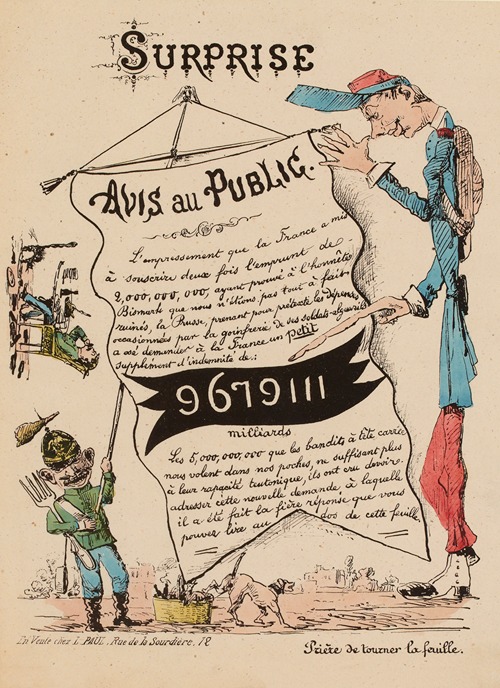 SURPRISE
AVIS AU PUBLIC.
L'empressement que la France a mis
à souscrire deux fois l'emprunt de
2,000,000,000, ayant prouvé à l'honnête
Bismark que nous n'étions pas tout à fait
ruinés, la Prusse, prenant pour prétexte les dépenses
occasionnées par la goinfrerie de ses soldats
a osé demander à la France un petit
supplément d'indemnité de:
9679111
milliards
Les 5,000,000,000 que les bandits à tête carrée
nous volent dans nos poches, ne suffisant plus
à leur rapacité teutonique, ils ont cru devoir
adresser cette nouvelle demande à laquelle
il a été fait la fière réponse que vous
pouvez lire au dos de cette feuille.
En Vente chez L. PAUL, Rue de la Sourdière,
Prière de tourner la feuille.